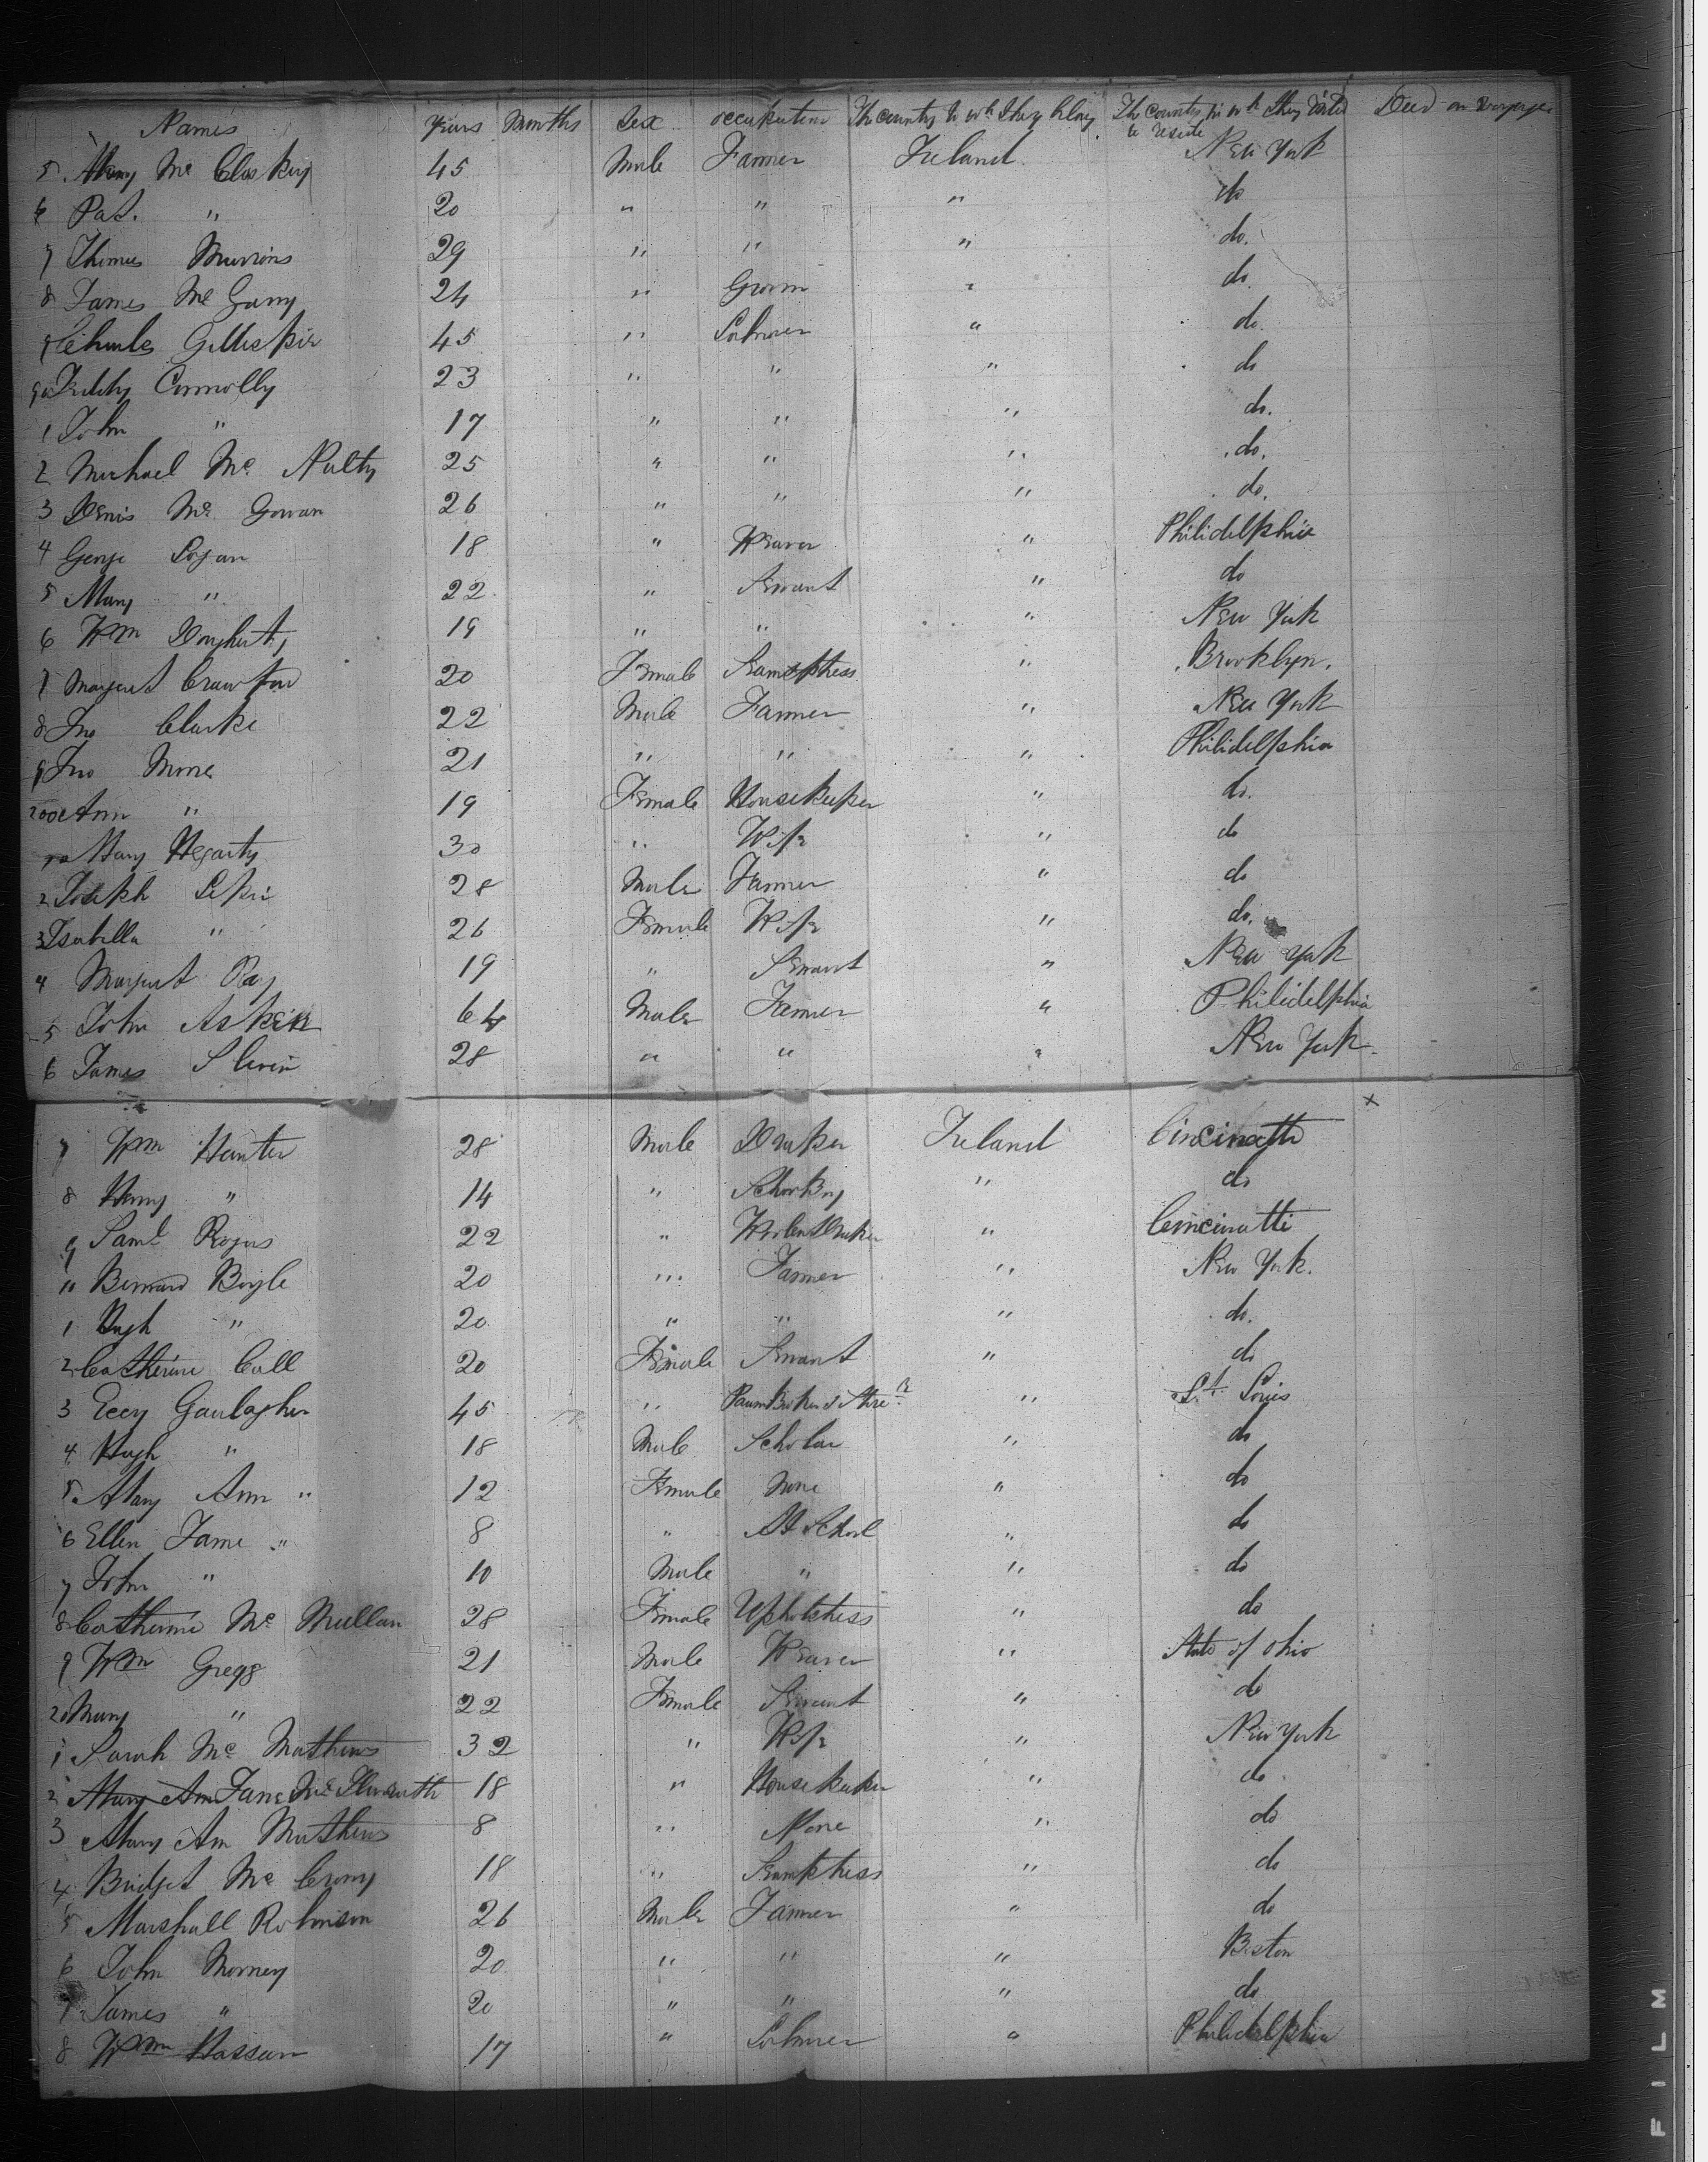 Names Years Months Sex occupation The country to wh they belong The country in wh they intend to reside Died on Voyage
5 Mary Mc Closkey 45 Male Farmer Ireland New York
6 Pat. " 20 " " " do
7 Thomas 29 " " " do.
8 James Mc Garry 24 " Groom " do.
9 Charles Gillespie 45 " Labourer " do.
90 Teddy Connolly 23 " " " do
1 John " 17 " " " do.
2 Michael Mc Nulty 25 " " " do.
3 Denis Mc Gowan 26 " " " do.
4 George Logan 18 " Weaver " Philidelphia
5 Mary " 22 " Servant " do
6 Wm Dougherty 19 " " " New York
7 Margaret Crawford 20 Female Seamsthess " Brooklyn.
8 Jno Clarke 22 Male Farmer " New York
9 Jno 21 " " " Philidelphia
200 Ann " 19 Female Housekeeper " do.
Mary Hegarty 30 " Wife " do
2 Joseph 28 Male Farmer " do
3 Isabella " 26 Female Wife " do.
4 Margaret Ray 19 " Servant " New York
5 John Asken 64 Male Farmer " Philidelphia
6 James Slevin 28 " " " New York.
7 Wm Hunter 28 Male Draper Ireland Cincinatti
8 Henry " 14 " School Boy " do
9 Saml Rogers 22 " Draper " Cincinatti
10 Bernard Boyle 20 " Farmer " New York.
1 Hugh " 20 " " " do.
2 Catherine Call 20 Female Servant " do
3 Gaulagher 45 " Pawn Broker & Store " St. Louis
4 Hugh " 18 Male Scholar " do
5 Mary Ann " 12 Female None " do
6 Ellen Jane " 8 " At School " do
7 John " 10 Male " " do
8 Catherine Mc Mullan 28 Female Upholstress " do
9 Wm Gregg 21 Male Weaver " State of Ohio
20 Mary " 22 Female Servant " do
1 Sarah Mc Mathews 32 " Wife " New York
2 Mary Ann Jane 18 " Housekeeper " do
3 Mary Ann Mathews 8 " None " do
4 Bridget Mc Crory 18 " " do
5 Marshall Robinson 26 Male Farmer " do
6 John Morney 20 " " " Boston
7 James " 20 " " " do
8 Wm Hassan 17 " Labourer " Philidelphia
FILM